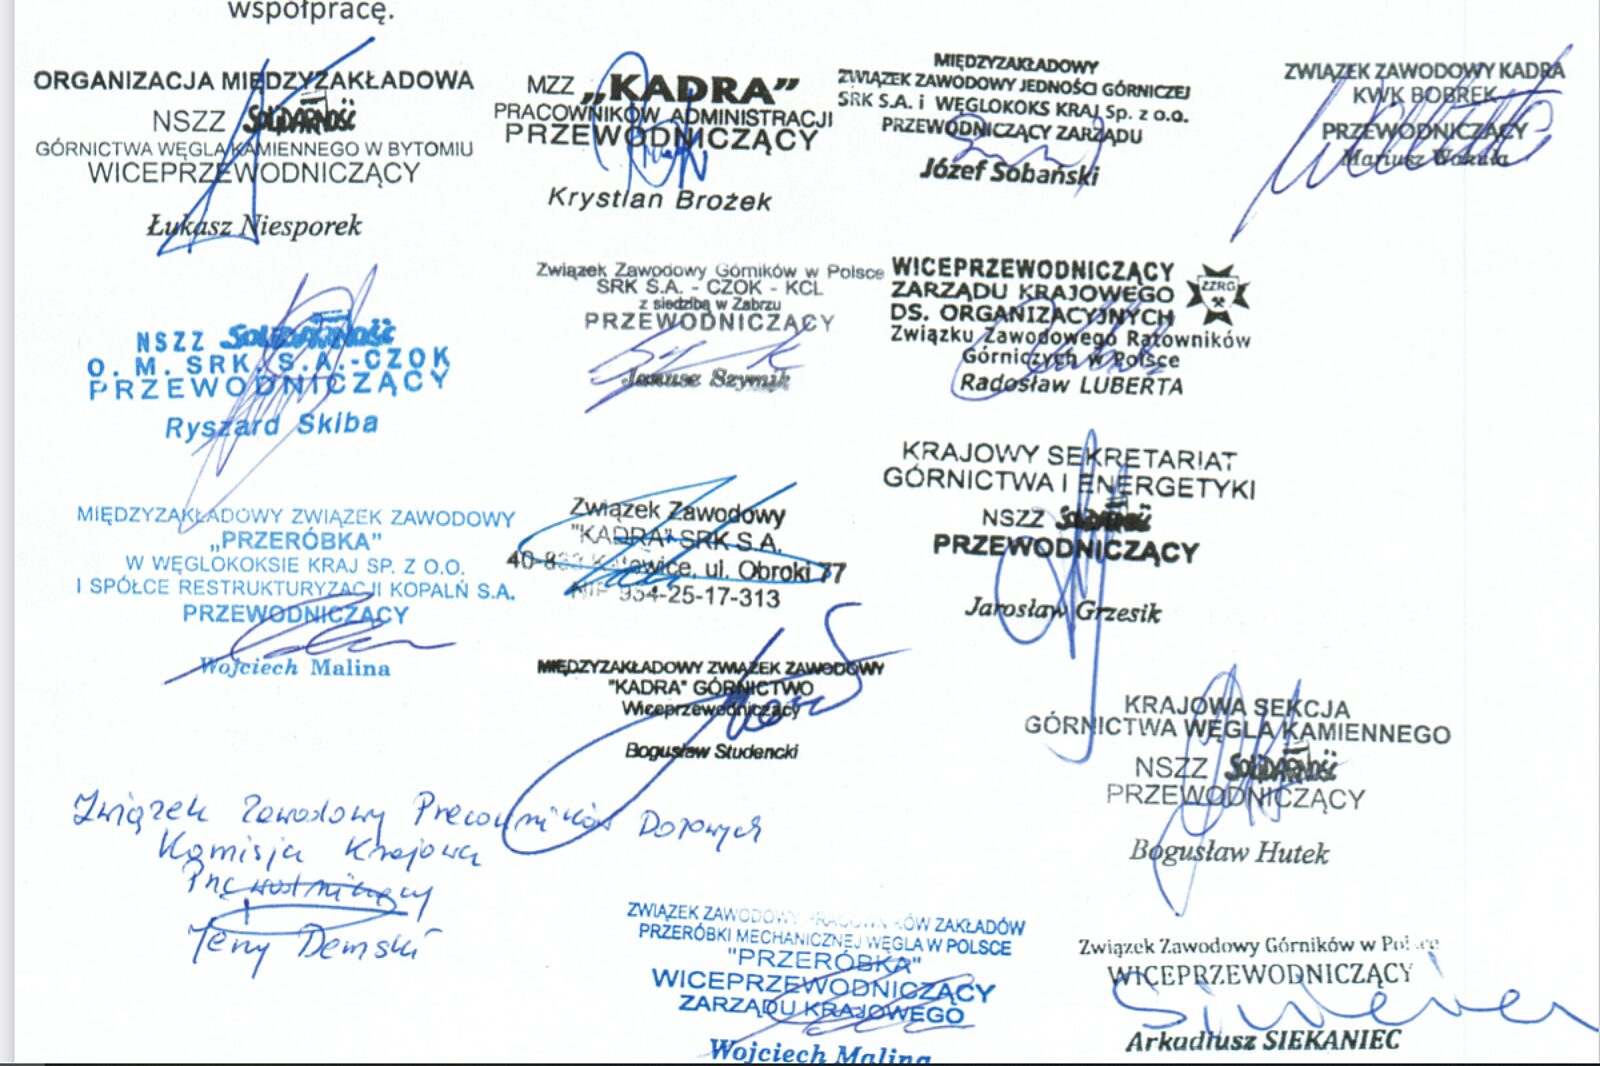 współpracę.
ORGANIZACJA MIĘDZYZAKŁADOWA
NSZZ Solidarność
GÓRNICTWA WĘGLA KAMIENNEGO W BYTOMIU
WICEPRZEWODNICZĄCY
Łukasz Niesporek
MZZ „KADRA”
PRACOWNIKÓW ADMINISTRACJI
PRZEWODNICZĄCY
Krystian Brożek
MIĘDZYZAKŁADOWY
ZWIĄZEK ZAWODOWY JEDNOŚCI GÓRNICZEJ
SRK S.A. i WĘGLOKOKS KRAJ Sp. z o.o.
PRZEWODNICZĄCY ZARZĄDU
Józef Sobański
ZWIĄZEK ZAWODOWY KADRA
KWK BOBREK
PRZEWODNICZĄCY
Mariusz
NSZZ Solidarność
O. M. SRK. S.A.-CZOK
PRZEWODNICZĄCY
Ryszard Skiba
Związek Zawodowy Górników w Polsce
SRK S.A. - CZOK - KCL
z siedzibą w Zabrzu
PRZEWODNICZĄCY
Janusz Szymik
WICEPRZEWODNICZĄCY
ZARZĄDU KRAJOWEGO
DS. ORGANIZACYJNYCH
Związku Zawodowego Ratowników
Górniczych w Polsce
Radosław LUBERTA
ZZRG
KRAJOWY SEKRETARIAT
GÓRNICTWA I ENERGETYKI
NSZZ Solidarność
PRZEWODNICZĄCY
Jarosław Grzesik
MIĘDZYZAKŁADOWY ZWIĄZEK ZAWODOWY
„PRZERÓBKA”
W WĘGLOKOKSIE KRAJ SP. Z O.O.
I SPÓŁCE RESTRUKTURYZACJI KOPALŃ S.A.
PRZEWODNICZĄCY
Wojciech Malina
Związek Zawodowy
"KADRA" SRK S.A.
Katowice, ul. Obroki 77
NIP 954-25-17-313
MIĘDZYZAKŁADOWY ZWIĄZEK ZAWODOWY
"KADRA" GÓRNICTWO
Wiceprzewodniczący
Bogusław Studencki
KRAJOWA SEKCJA
GÓRNICTWA WĘGLA KAMIENNEGO
NSZZ Solidarność
PRZEWODNICZĄCY
Bogusław Hutek
Związek Zawodowy Pracowników Dołowych
Komisja Krajowa
Przewodniczący
Jerzy Demski
ZWIĄZEK ZAWODOWY PRACOWNIKÓW ZAKŁADÓW
PRZERÓBKI MECHANICZNEJ WĘGLA W POLSCE
"PRZERÓBKA"
WICEPRZEWODNICZĄCY
ZARZĄDU KRAJOWEGO
Wojciech Malina
Związek Zawodowy Górników w Polsce
WICEPRZEWODNICZĄCY
Arkadiusz SIEKANIEC